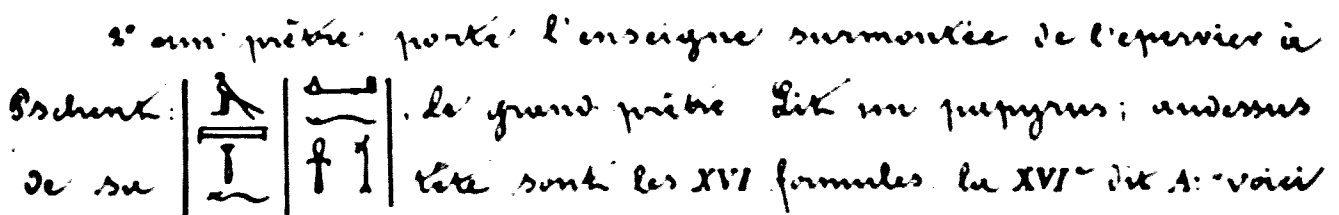 2° prêtre porte l'enseigne surmontée de l'epervier à
Pschent: . le grand prêtre Lit un papyrus; audessus
de sa tête sont les XVI formules la XVIe dit A: voici